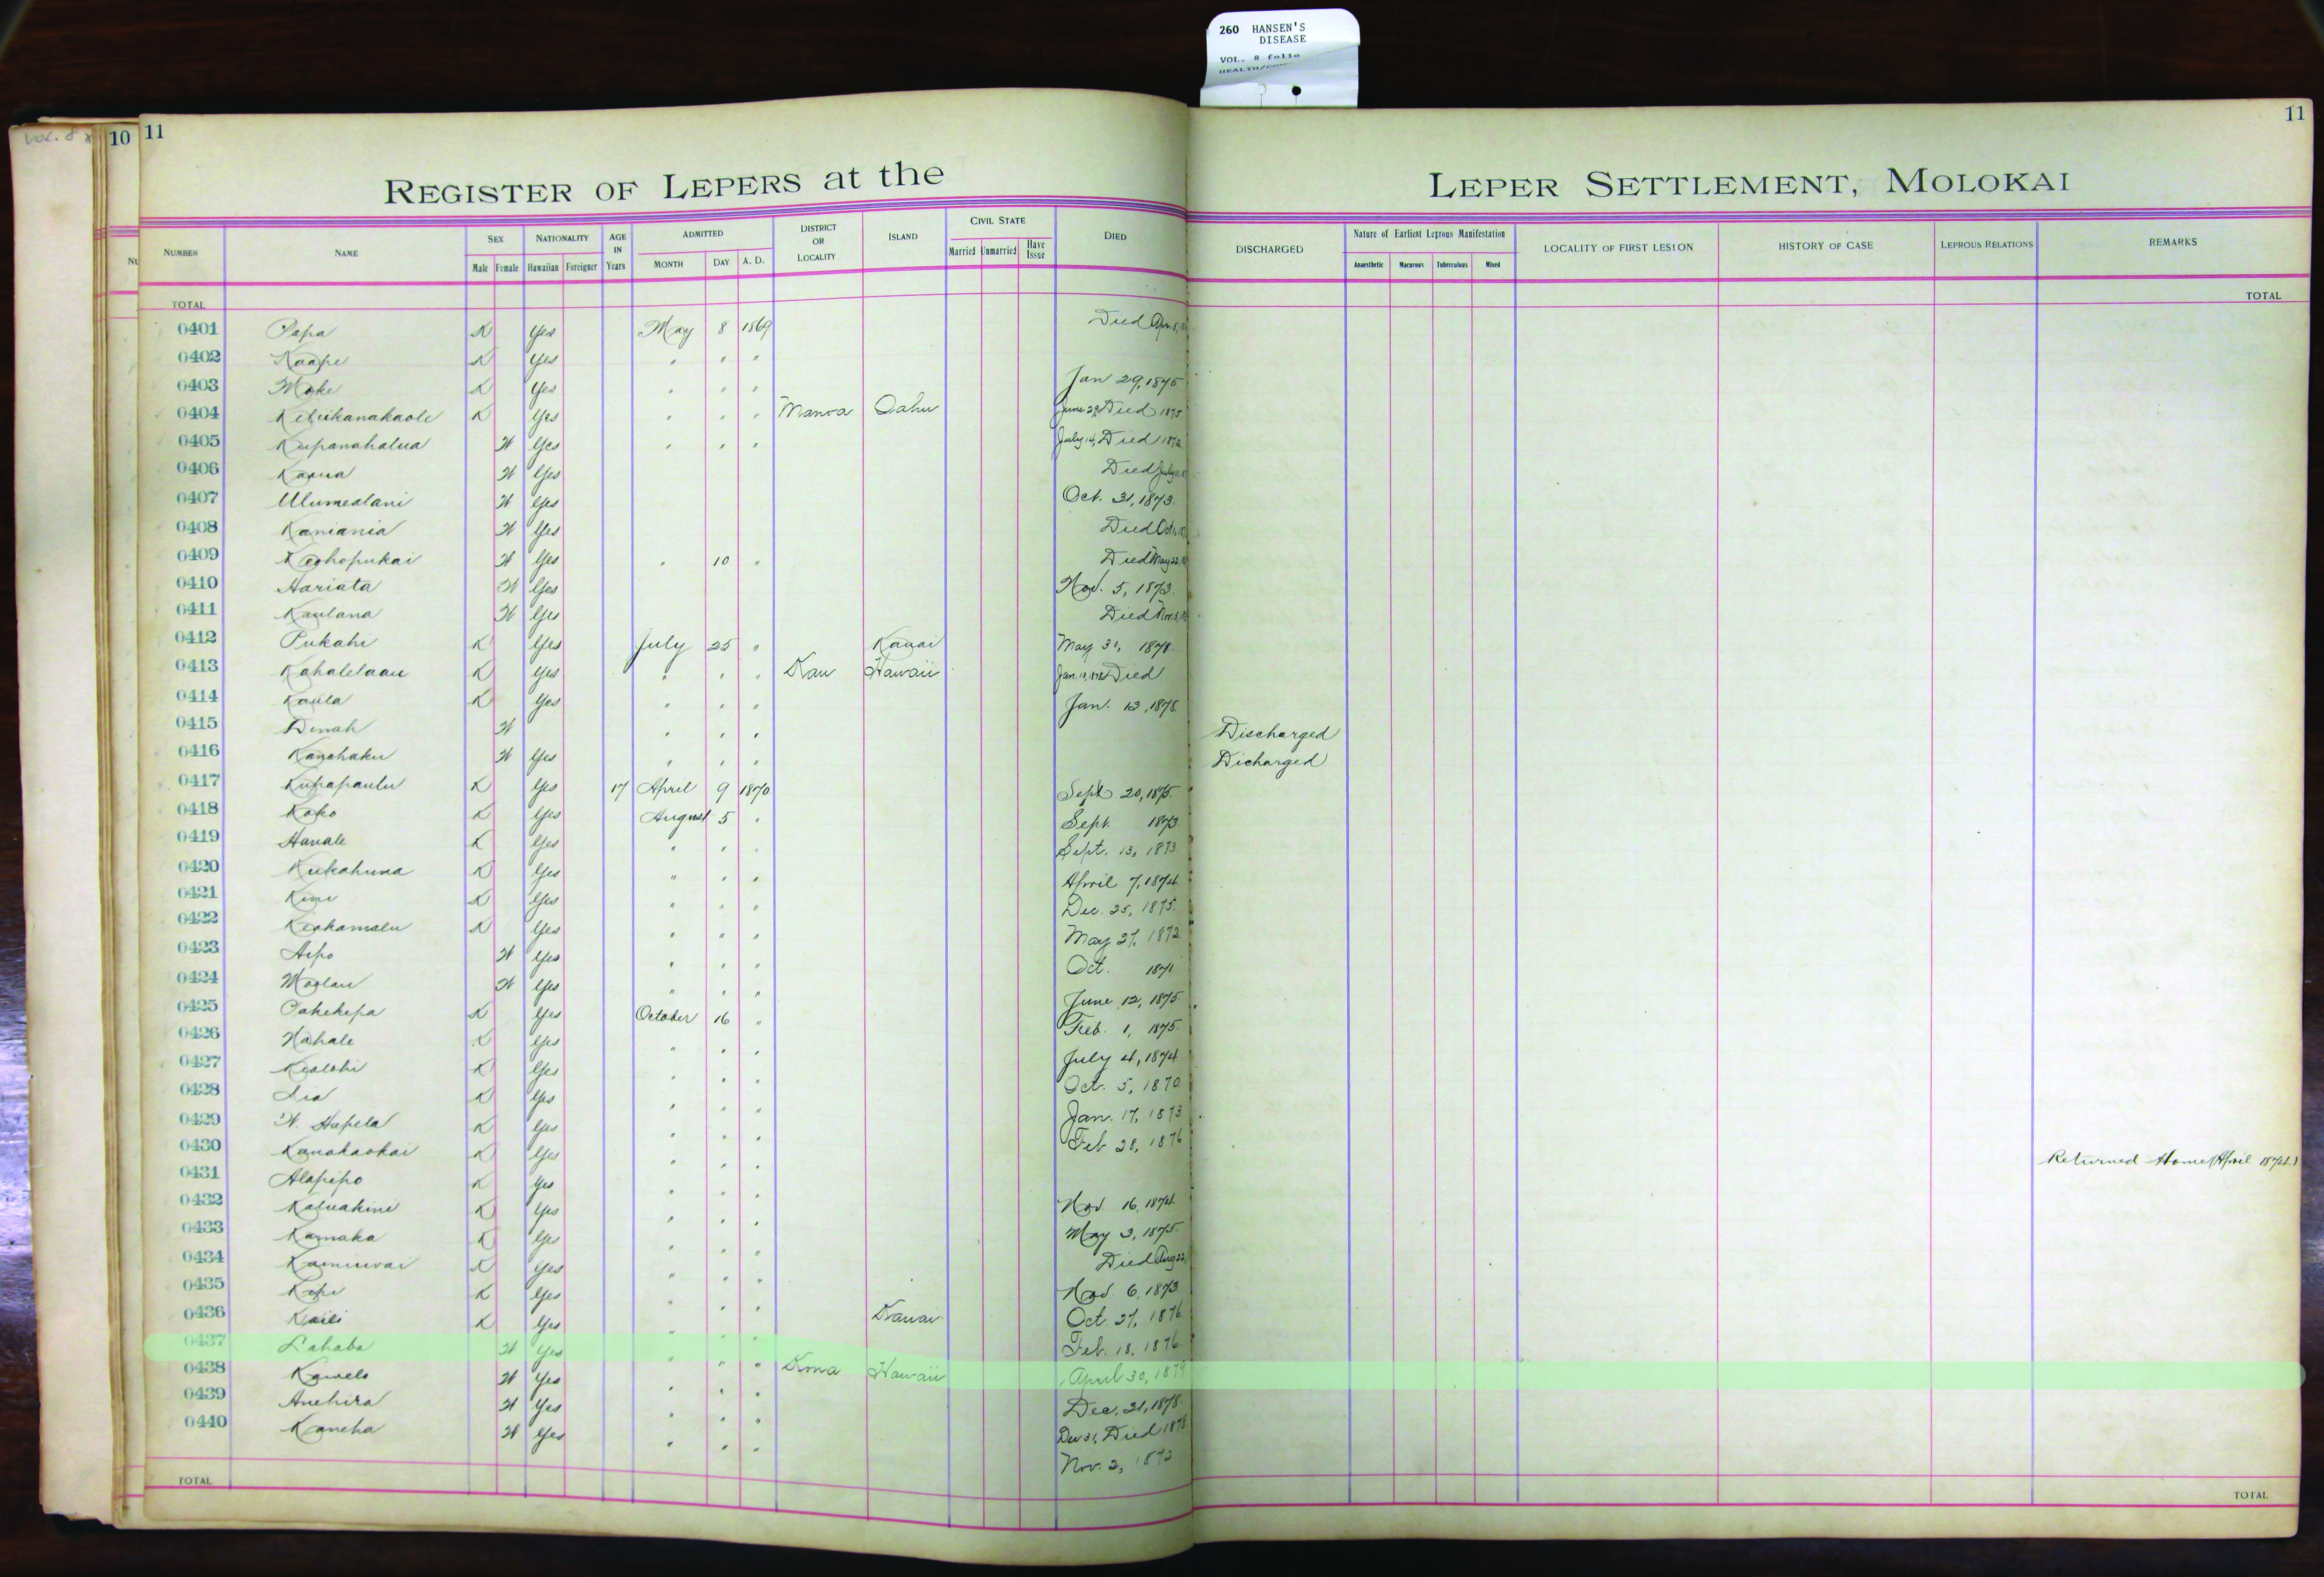 260 HANSEN'S
DISEASE
VOL. 8 folio
VOL. 8
10 11
11
REGISTER OF LEPERS at the LEPER SETTLEMENT, MOLOKAI
NUMBER NAME SEX NATIONALITY AGE IN Years ADMITTED DISTRICT OR LOCALITY ISLAND CIVIL STATE DIED DISCHARGED Nature of Earliest Leprous Manifestation LOCALITY OF FIRST LESION HISTORY OF CASE LEPROUS RELATIONS REMARKS
Male Female Hawaiian Foreigner MONTH DAY A. D. Married Unmarried Have Issue Anaesthetic Macurous Tuberculous Mixed
TOTAL TOTAL
0401 Papa K Yes May 8 1869 Died Apr.
0402 Kaape K Yes " " "
0403 Moke K Yes " " " Jan 29, 1875
0404 Keliikanakaole K Yes " " " Manoa Oahu June 29, Died 1875
0405 Kupanahalua W Yes " " " July 14, Died 1872
0406 Kaaua W Yes Died July
0407 Ulumealani W Yes Oct. 31, 1873.
0408 Kaniania W Yes Died Oct.
0409 Keohopukai W Yes " 10 " Died May 22,
0410 Hariata W Yes Nov. 5, 1873.
0411 Kaulana W Yes Died Nov.
0412 Pukahi K Yes July 25 " Kauai May 31, 1878.
0413 Kahalelaau K Yes " " " Kau Hawaii Jan. Died
0414 Kaula K Yes " " " Jan. 13, 1878.
0415 Dinah W " " " Discharged
0416 Kanohaku W Yes " " " Dicharged
0417 Kupapaulu K Yes 17 April 9 1870 Sept 20, 1875.
0418 Koko K Yes August 5 " Sept. 1873
0419 Hanale K Yes " " " Sept. 13, 1873
0420 Kukahuna K Yes " " " April 7, 1874
0421 Kini K Yes " " " Dec. 25, 1875.
0422 Keakamalu K Yes " " " May 27, 1872
0423 Aipo W Yes " " " Oct. 1871
0424 Moolau W Yes " " " June 12, 1875
0425 Pakekepa K Yes October 16 " Feb. 1, 1875.
0426 Nahale K Yes " " " July 4, 1874
0427 Kealohi K Yes " " " Oct. 5, 1870
0428 Lia K Yes " " " Jan. 17, 1873
0429 W. Hapela K Yes " " " Feb 28, 1876
0430 Kanakaokai K Yes " " " Returned Home (April 1874.)
0431 Alapipo K Yes " " " Nov 16, 1874
0432 Kaluakini K Yes " " " May 3, 1875.
0433 Kamaka K Yes " " " Died Aug 22,
0434 K Yes " " " Nov. 6, 1873
0435 Kepi K Yes " " " Kauai Oct. 27, 1876
0436 Kaili K Yes " " " Feb. 18, 1876
0437 Lahaba W Yes " " " Kona Hawaii April 30, 1879
0438 Kawelo W Yes " " " Dec. 31, 1878.
0439 Anehira W Yes " " " Dec 31, Died 1878
0440 Kaneha W Yes " " " Nov. 2, 1872
TOTAL TOTAL